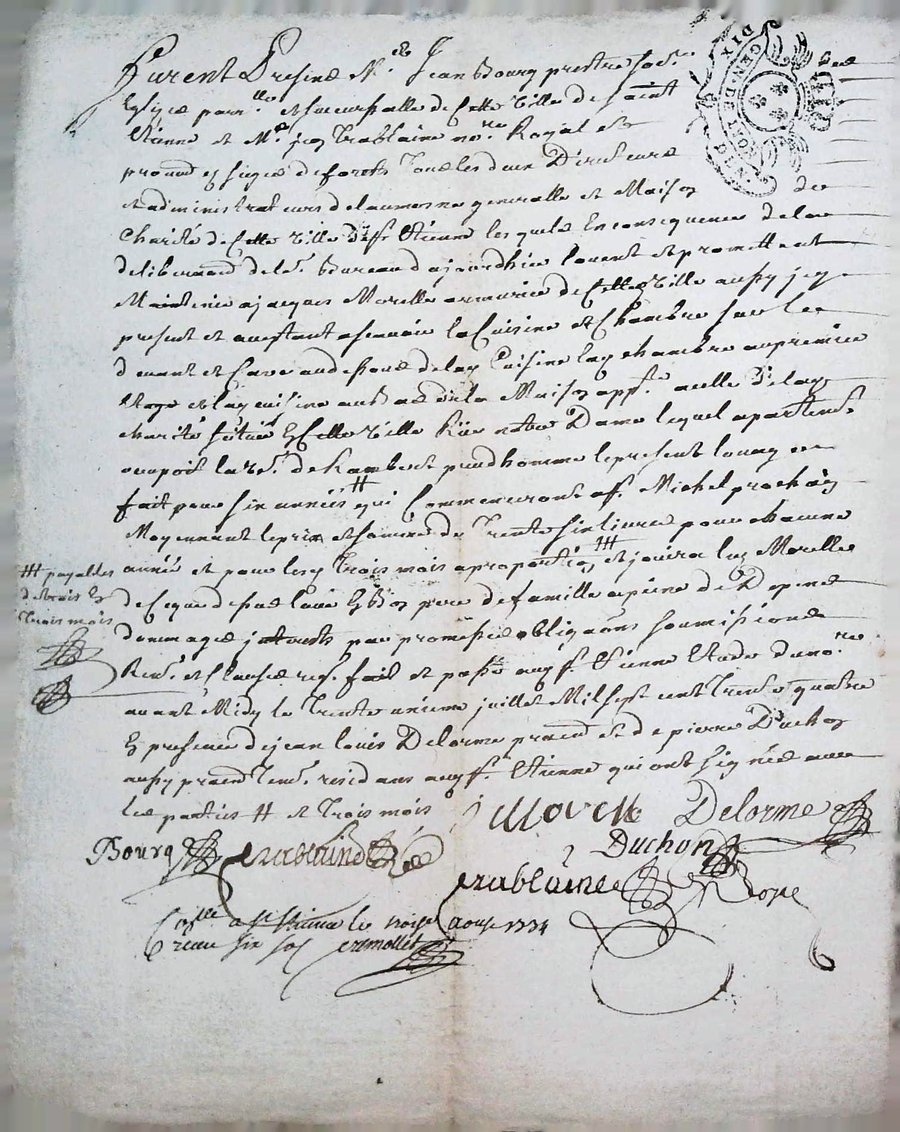 furent presens Mre Jean Bourg prestre soc.re des
Eglises parr.lle et succursalle de cette ville de saint
Etienne et Me jcq Trablaine nore Royal et
procur es sieges de forets Tous les deux Directeurs
et administrateurs de laumosne generalle et Maison de
Charité de cette ville dud st Etienne lesquels En consequence de la
deliberaõn de le. Bureau dajourdhui louent et promettent
Maintenir a jacques Morelle armurier de cette ville aussy jcy
present et acceptant a scavoir la Cuisine et Chambre sur le
devant et Cave au desous de lad Cuisine lad chambre au premier
etage et lad cuisine au bas de la Maison app.te a elle de lad
charité scituée en cette ville Rüe notre Dame lequel apartement
occupoit la ve. de Rambert prudhomme le present louage
fait pour six années # qui Commenceront a st Michel prochain
Moyennant le prix et somme de Trente six livres pour chacune
année et pour lesd Trois mois a proportion ## et jouira led Morelle
de ce que dessus loüé En Bon pere de famille a peine de Depens
dommages jnterets par promesses obligaõns soumissions
Ren. et clauses req. fait et passé aud st Etienne Etude du nore
avant Midy le Trente unieme juillet Mil sept cent Trente quatre
En presence de jean Louis Delorme praticn et de pierre Duchon
aussy praticn temt. residans aud st Etienne qui ont signés avec
les parties # et trois mois
## payables
de trois en
trois mois
j Morelle Delorme
Bourg Trablaine
Duchon
Trablaine
Conlle a st Etienne le troise aoust 1734
receu six sols
DIX
GEN. DE LION